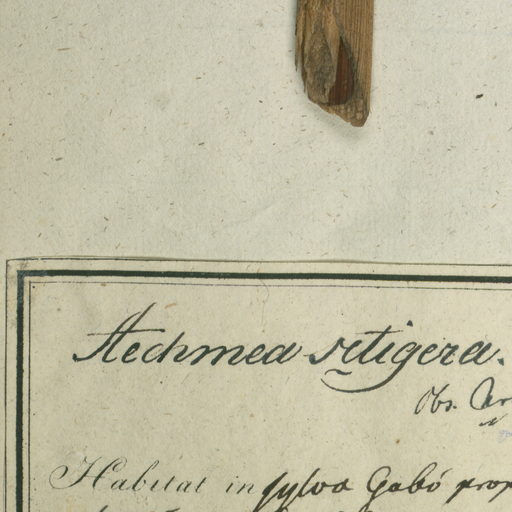 Aechmea setigera.
Obs.
Habitat in sylva Gabó prop